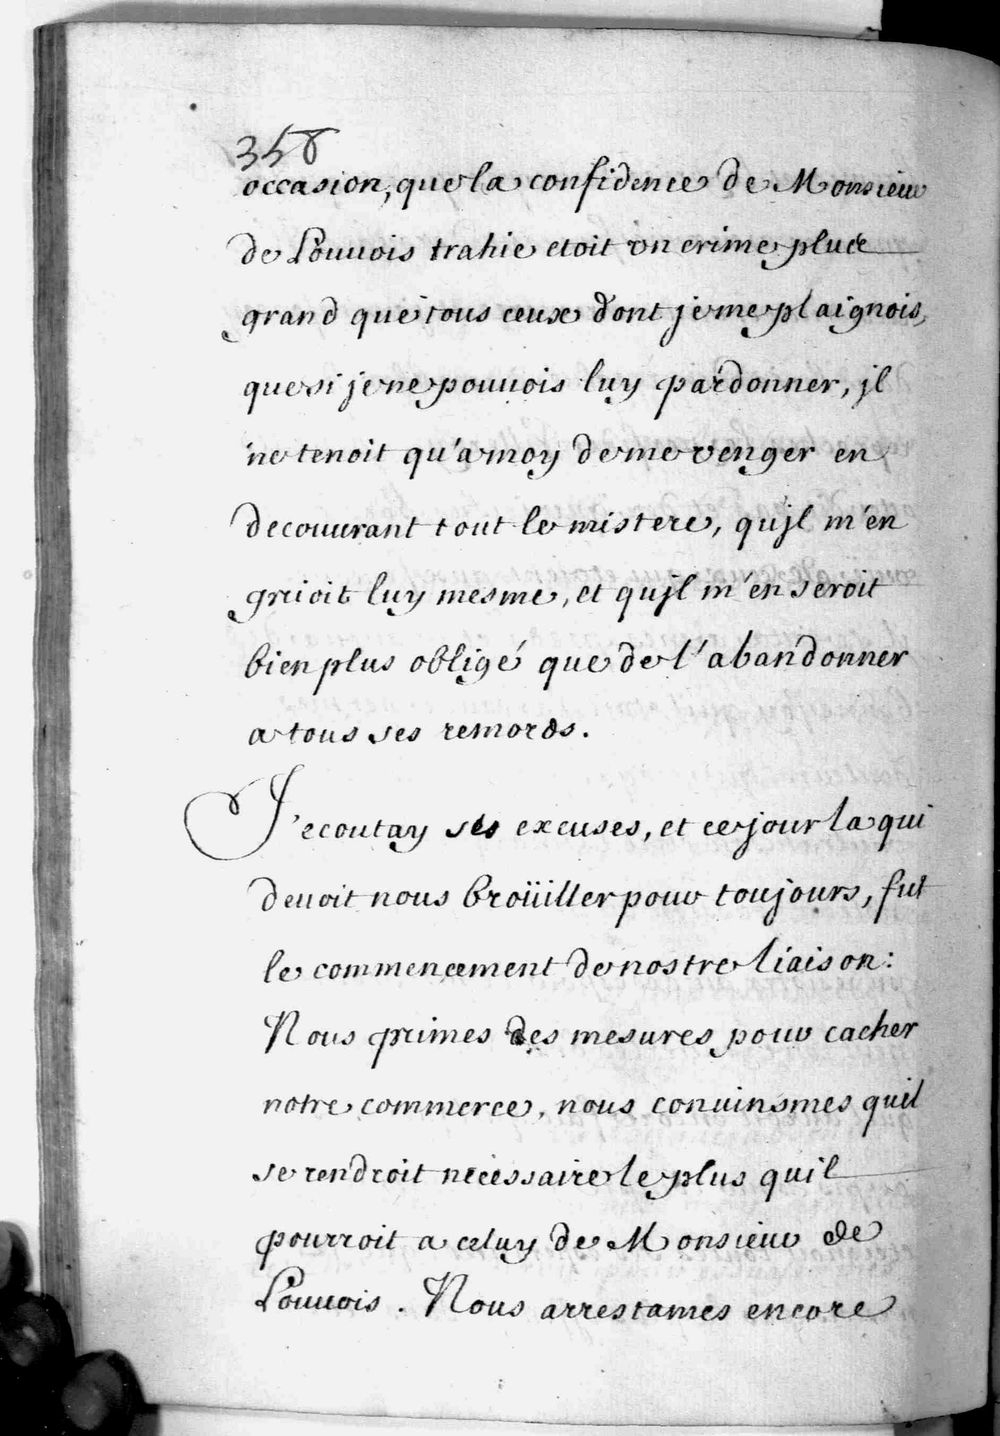 358
occasion, que la confidence de Monsieur
de Louuois trahie etoit vn crime plus
grand que tous ceux dont je me plaignois,
que si je ne pouuois luy pardonner, jl
ne tenoit qu'a moy de me venger en
decouurant tout le mistere, qujl m'en
prioit luy mesme, et qujl m'en seroit
bien plus obligé que de l'abandonner
a tous ses remords.
J'ecoutay ses excuses, et ce jour la qui
deuoit nous broüiller pour toujours, fut
le commencement de nostre liaison:
Nous primes des mesures pour cacher
notre commerce, nous conuinsmes quil
se rendroit necessaire le plus quil
pourroit a celuy de Monsieur de
Louuois. Nous arrestames encore